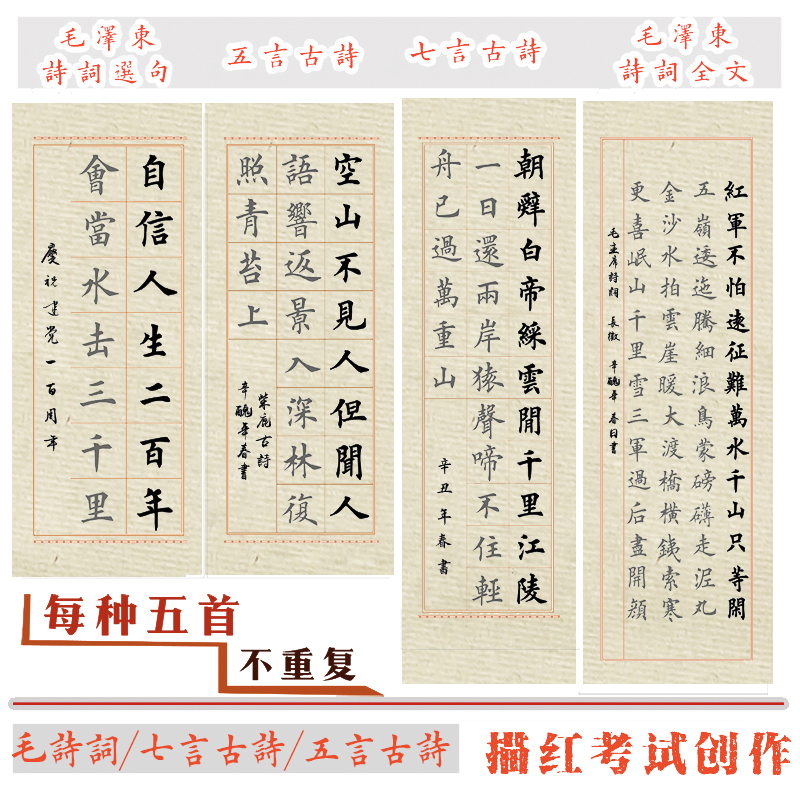 毛澤東
詩詞選句
五言古詩
七言古詩
毛澤東
詩詞全文
自信人生二百年
會當水击三千里
慶祝建党一百周年
空山不見人但聞人
語響返景入深林復
照青苔上
柴鹿古詩
辛醜年春書
朝辤白帝綵雲間千里江陵
一日還兩岸猿聲啼不住輕
舟已過萬重山
辛丑年春書
紅軍不怕遠征難萬水千山只等閑
五嶺逶迤騰細浪烏蒙磅礴走泥丸
金沙水拍雲崖暖大渡橋橫鐵索寒
更喜岷山千里雪三軍過后盡開顏
毛主席詩詞 長徵 辛醜年 春日書
每种五首
不重复
毛詩詞/七言古詩/五言古詩
描红考试创作